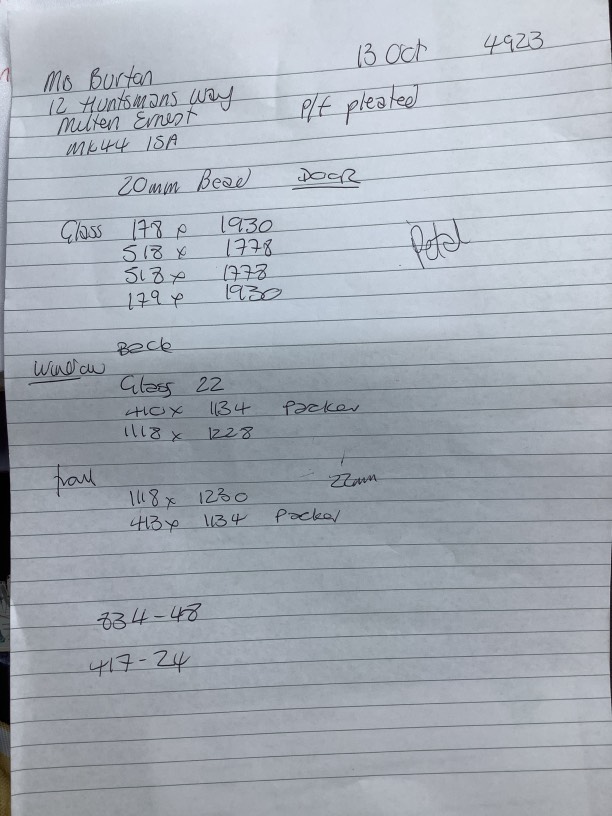 13 Oct 4923
Ms Burton
12 Huntsmans Way
Milton Ernest
MK44 1SA
p/f pleated
20mm Bead DOOR
Glass 178 x 1930
518 x 1778
518 x 1778
179 x 1930
Petal
Back
Window
Glass 22
410 x 1134 Packer
1118 x 1228
front
22mm
1118 x 1230
413 x 1134 Packer
834-48
417-24